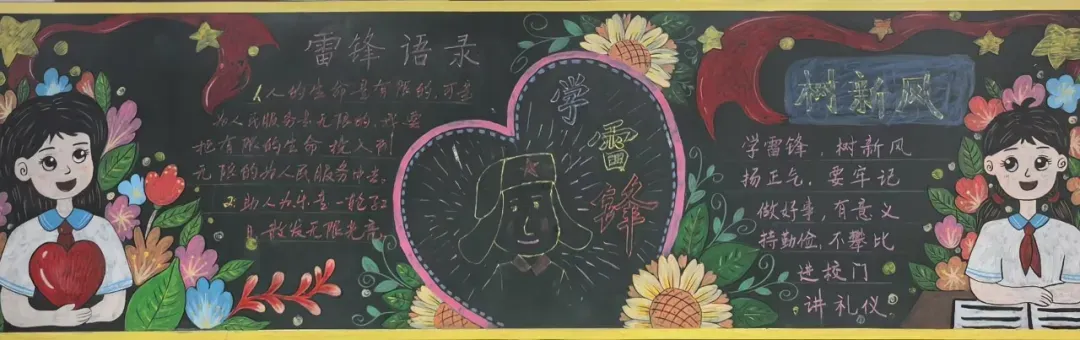 雷锋语录
人的生命是有限的,可是
为人民服务是无限的,我要
把有限的生命,投入到
无限的为人民服务中去。
2、助人为乐是一轮红
日,散发无限光亮。
学雷锋
树新风
学雷锋,树新风
扬正气,要牢记
做好事,有意义
持勤俭,不攀比
进校门
讲礼仪